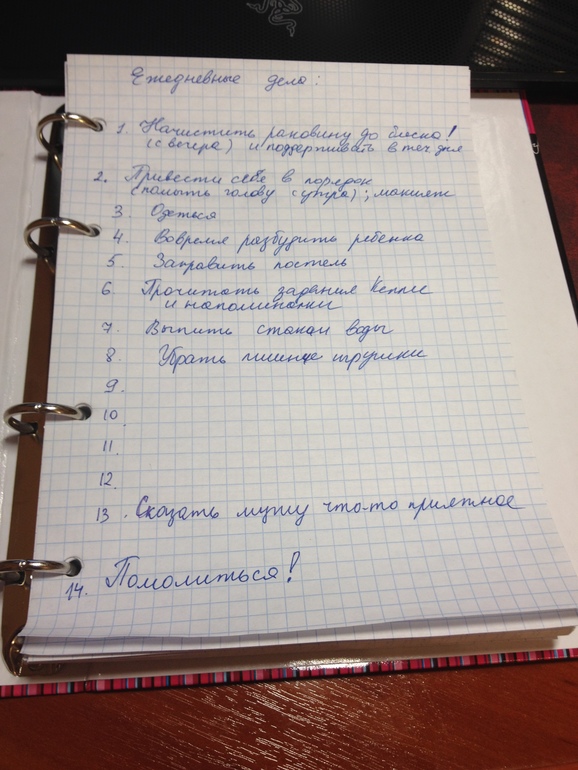 Ежедневные дела:
1. Начистить раковину до блеска!
(с вечера) и поддерживать в теч. дня
2. Привести себя в порядок
(помыть голову с утра); макияж
3. Одеться
4. Вовремя разбудить ребенка
5. Заправить постель
6. Прочитать задания Келли
и напоминалки
7. Выпить стакан воды
8. Убрать лишние игрушки
9.
10
11.
12.
13. Сказать мужу что-то приятное
14. Помолиться!